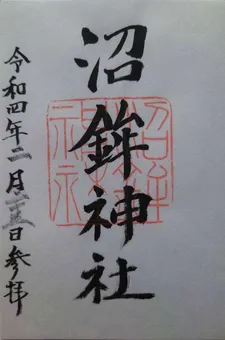 沼鉾神社
令和四年二月二十五日参拝